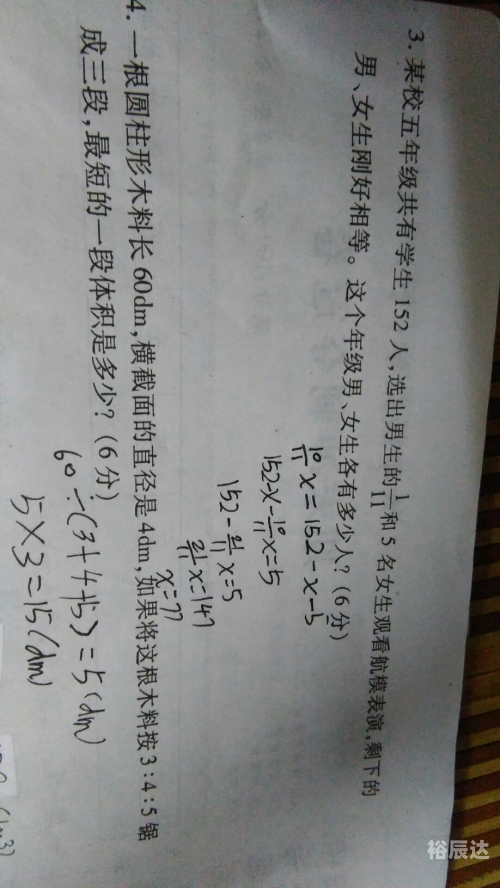 3. 某校五年级共有学生 152 人,选出男生的 1/11 和 5 名女生观看航模表演,剩下的
男、女生刚好相等。这个年级男、女生各有多少人?(6 分)
10/11 x = 152 - x - 5
152 - x - 10/11 x = 5
152 - 21/11 x = 5
21/11 x = 147
x = 77
4. 一根圆柱形木料长 60dm,横截面的直径是 4dm,如果将这根木料按 3:4:5 锯
成三段,最短的一段体积是多少?(6 分)
60÷(3+4+5)=5(dm)
5×3=15(dm)
裕辰达